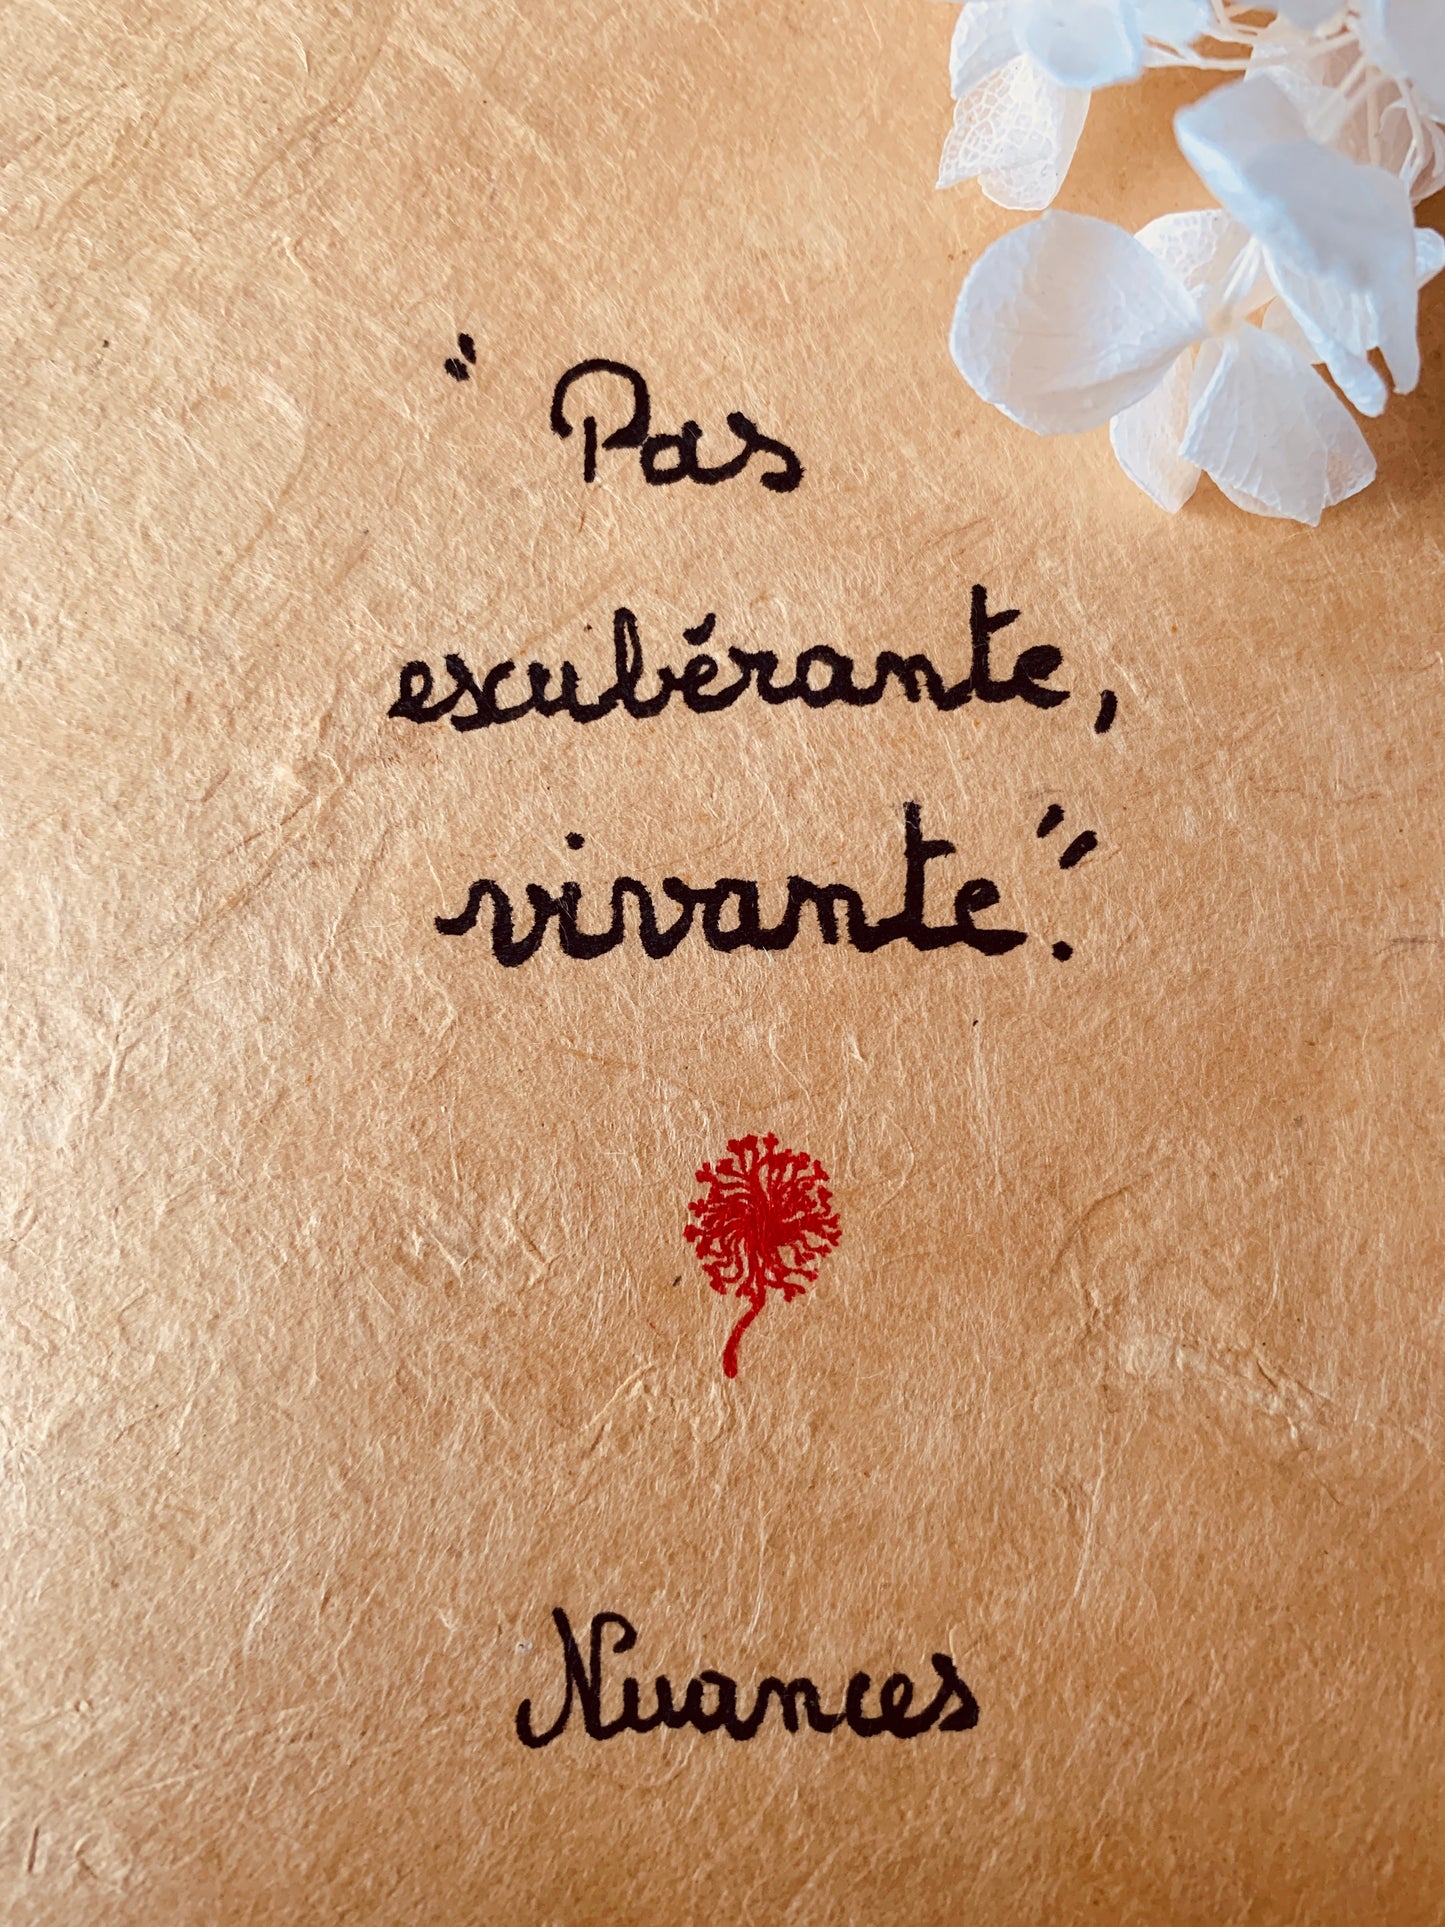 "Pas
exubérante,
vivante."
Nuances